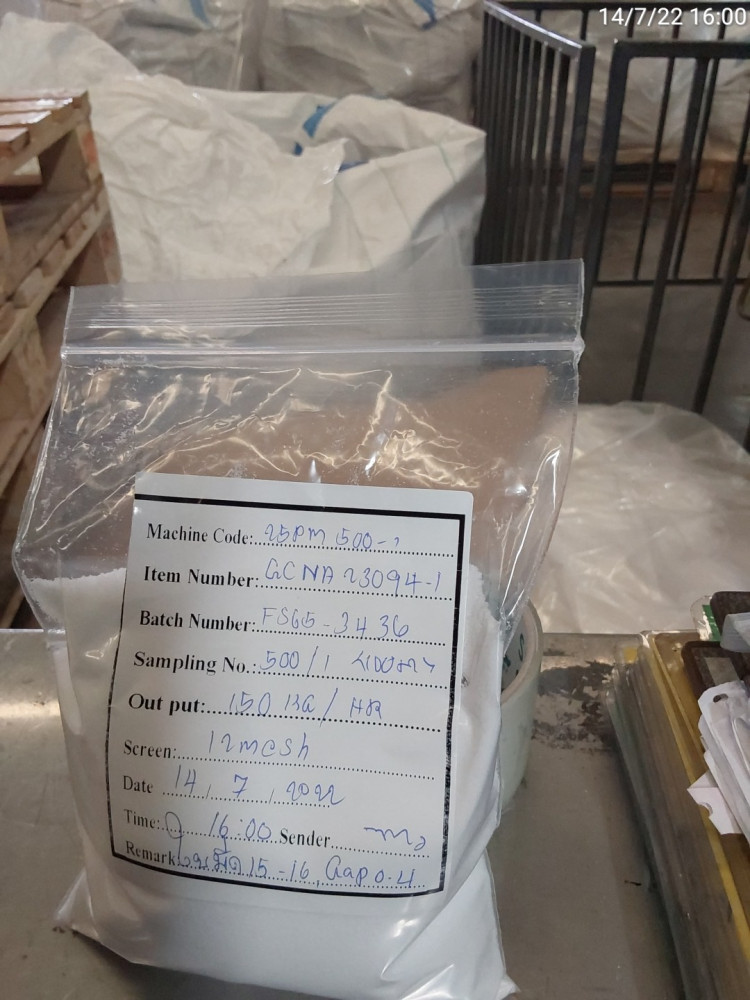 14/7/22 16:00
Machine Code: 25PM 500-2
Item Number: GCNA 23094-1
Batch Number: FS65-3436
Sampling No.: 500/1
Out put: 150 KG/HR
Screen: 12mesh
Date 14, 7, 2022
Time: 16:00 Sender
Remark 15-16, Gap 0.4